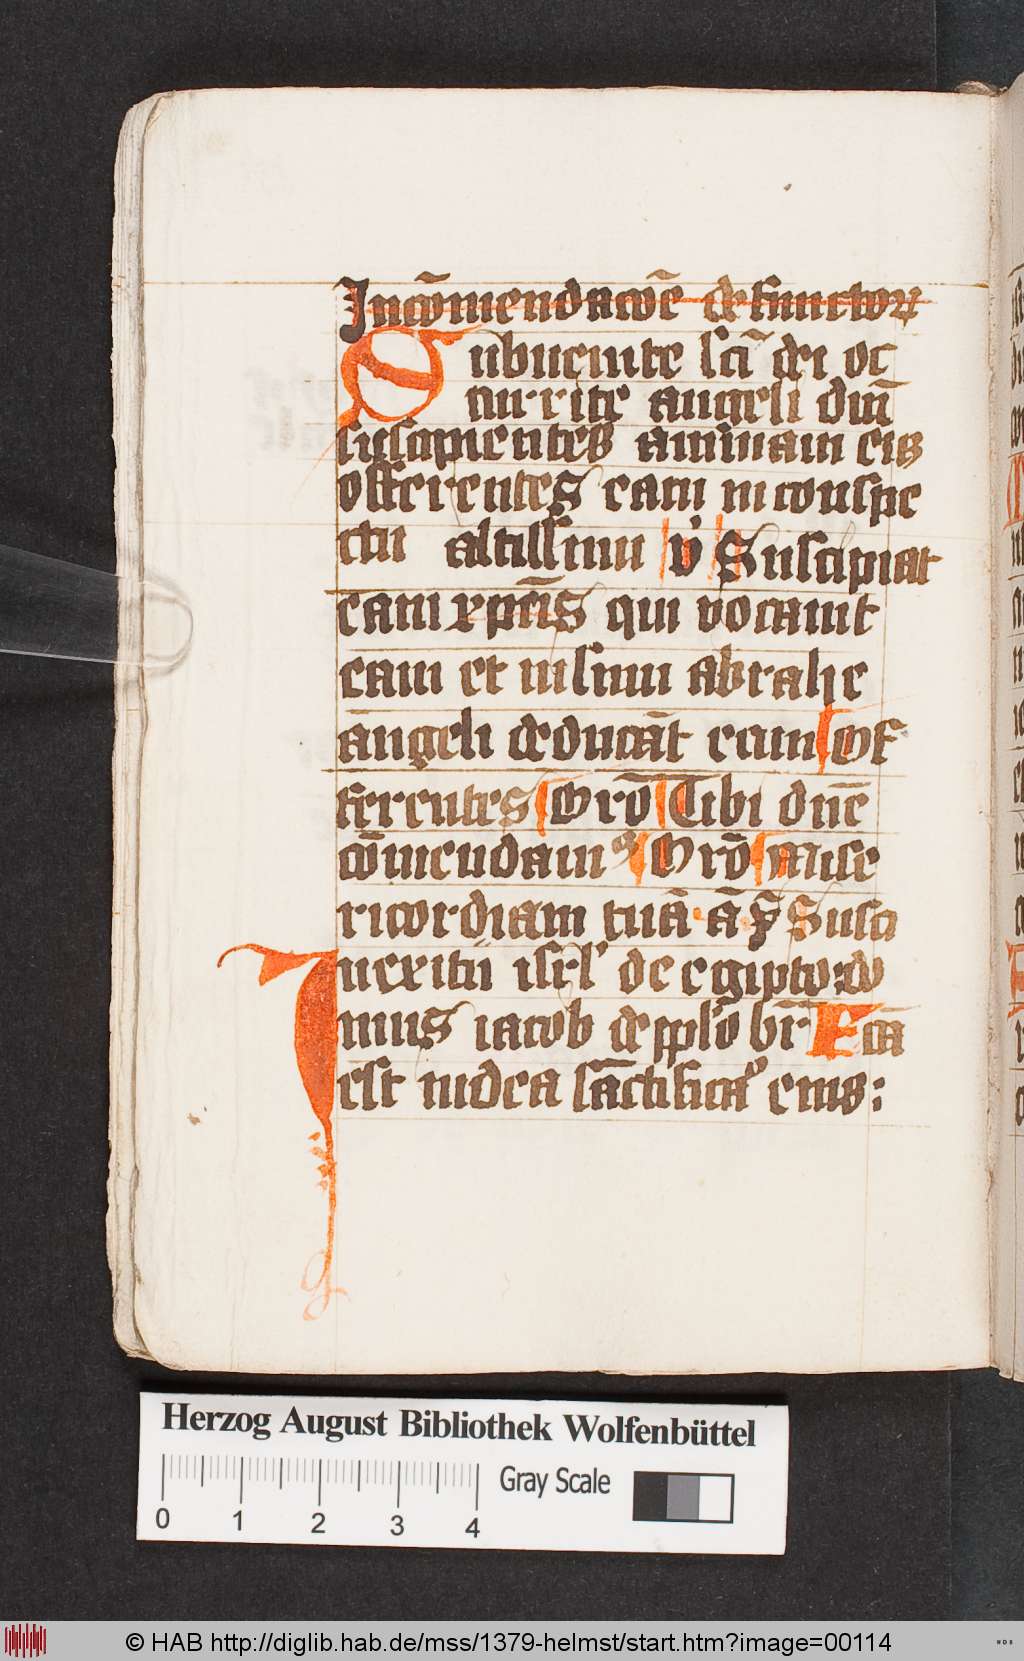 In co̅mendaco̅e defunctoꝝ
Subuenite sc̅i dei oc
currite angeli dm̅
suscipientes animam eis
offerentes eam in conspe
ctu altissimi v̇ Suscipiat
eam xpc̅s qui vocauit
eam et in sinu abrahe
angeli deducāt eam Of
ferentes Oro̅ Tibi dn̅e
co̅mendamꝰ Oro̅ Mise
ricordiam tuā ā p̄s Susci
In exitu isrl' de egipto: do
mus iacob de pplo br̅ Fctā
est iudea sanctificaᵒ eius:
Herzog August Bibliothek Wolfenbüttel
Gray Scale
0 1 2 3 4
© HAB http://diglib.hab.de/mss/1379-helmst/start.htm?image=00114